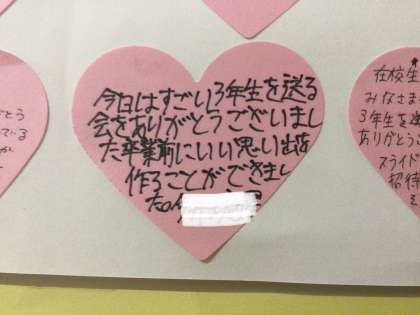 今日はすごい3年生を送る
会をありがとうございまし
た卒業前にいい思い出を
作ることができまし
た。
在校生
みなさま
3年生を送
ありがとうご
スライド
招待
とう
ている
が